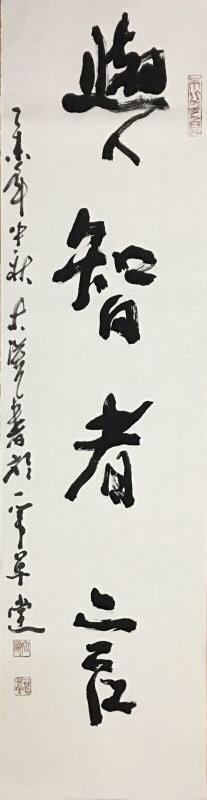 與智者言
乙未年中秋書於一草堂